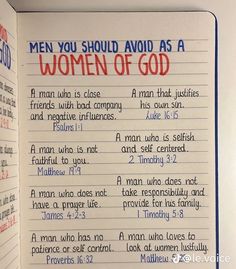 MEN YOU SHOULD AVOID AS A
WOMEN OF GOD
A man who is close
friends with bad company
and negative influences.
Psalms 1:1
A man that justifies
his own sin.
Luke 16:15
A man who is not
faithful to you.
Matthew 19:9
A man who is selfish
and self centered.
2 Timothy 3:2
A man who does not
have a prayer life.
James 4:2-3
A man who does not
take responsibility and
provide for his family.
1 Timothy 5:8
A man who has no
patience or self control.
Proverbs 16:32
A man who loves to
look at women lustfully.
Matthew
le.voice